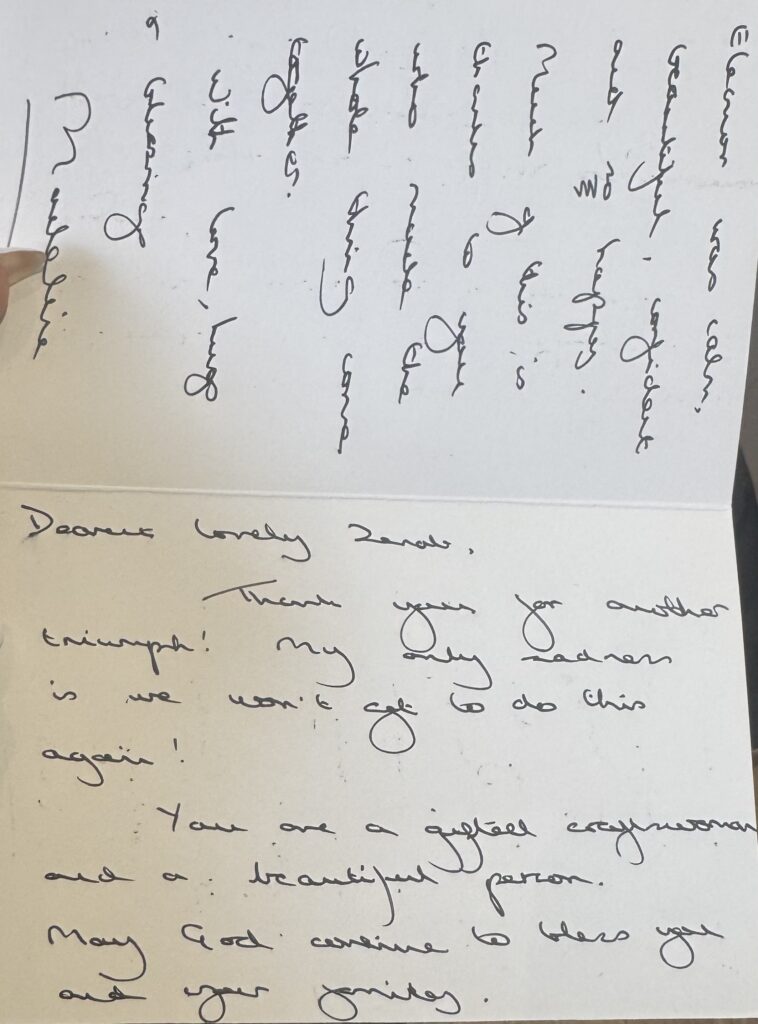 Dearest lovely Zenab,
Thank you for another
triumph! My only sadness
is we won't get to do this
again!
You are a gifted craftswoman
and a beautiful person.
May God continue to bless you
and your family.
Eleanor was calm,
beautiful, confident
and so happy.
Much of this is
thanks to you
who made the
whole thing come
together.
With love, hugs
& blessings
Madeleine